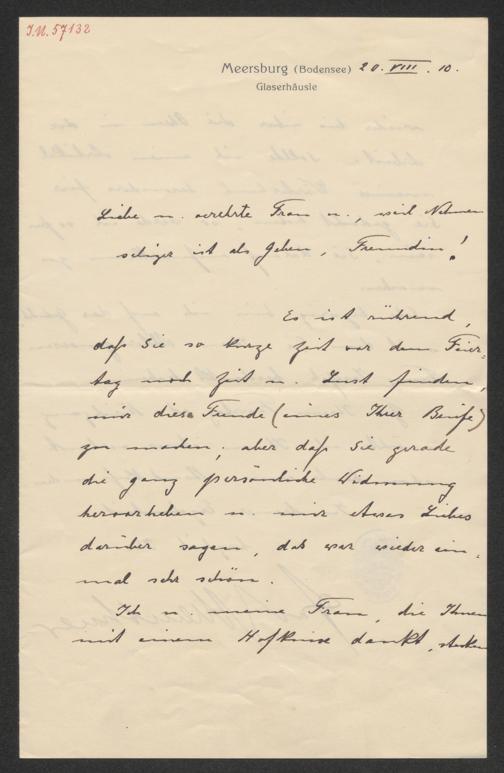 I.N. 57132
Meersburg (Bodensee) 20. VIII. 10.
Glaserhäusle
Liebe u. verehrte Frau u., weil Nehmen
seliger ist als Geben, Freundin!
Es ist rührend,
daß Sie so kurze Zeit vor dem Feier-
tag noch Zeit u. Lust finden,
mir diese Freude (eines Ihrer Berufe)
zu machen; aber daß Sie gerade
die ganz persönliche Widmung
hervorheben u. mir etwas Liebes
darüber sagen, das war wieder ein-
mal sehr schön.
Ich u. meine Frau, die Ihnen
mit einem Hofknixe dankt, stecken